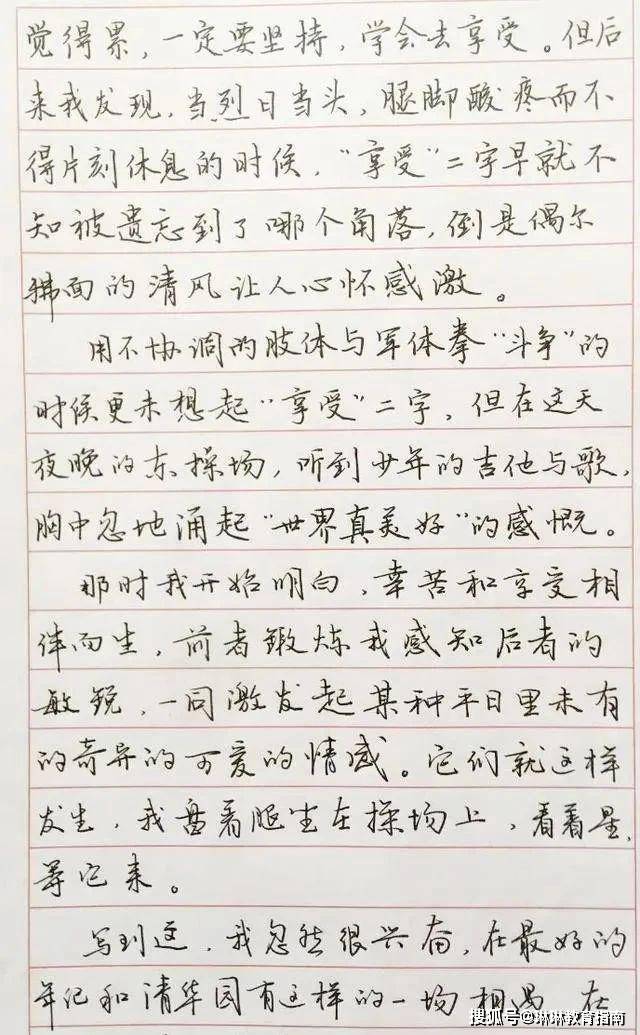 觉得累，一定要坚持，学会去享受。但后
来我发现，当烈日当头，腿脚酸疼而不
得片刻休息的时候，“享受”二字早就不
知被遗忘到了哪个角落，倒是偶尔
拂面的清风让人心怀感激。
用不协调的肢体与军体拳“斗争”的
时候更未想起“享受”二字，但在这天
夜晚的东操场，听到少年的吉他与歌，
胸中忽地涌起“世界真美好”的感慨。
那时我开始明白，辛苦和享受相
伴而生，前者锻炼我感知后者的
敏锐，一同激发起某种平日里未有
的奇异的可爱的情感。它们就这样
发生，我盘着腿坐在操场上，看着星，
等它来。
写到这，我忽然很兴奋，在最好的
年纪和清华园有这样的一场相遇，在
搜狐号@琳琳教育指南